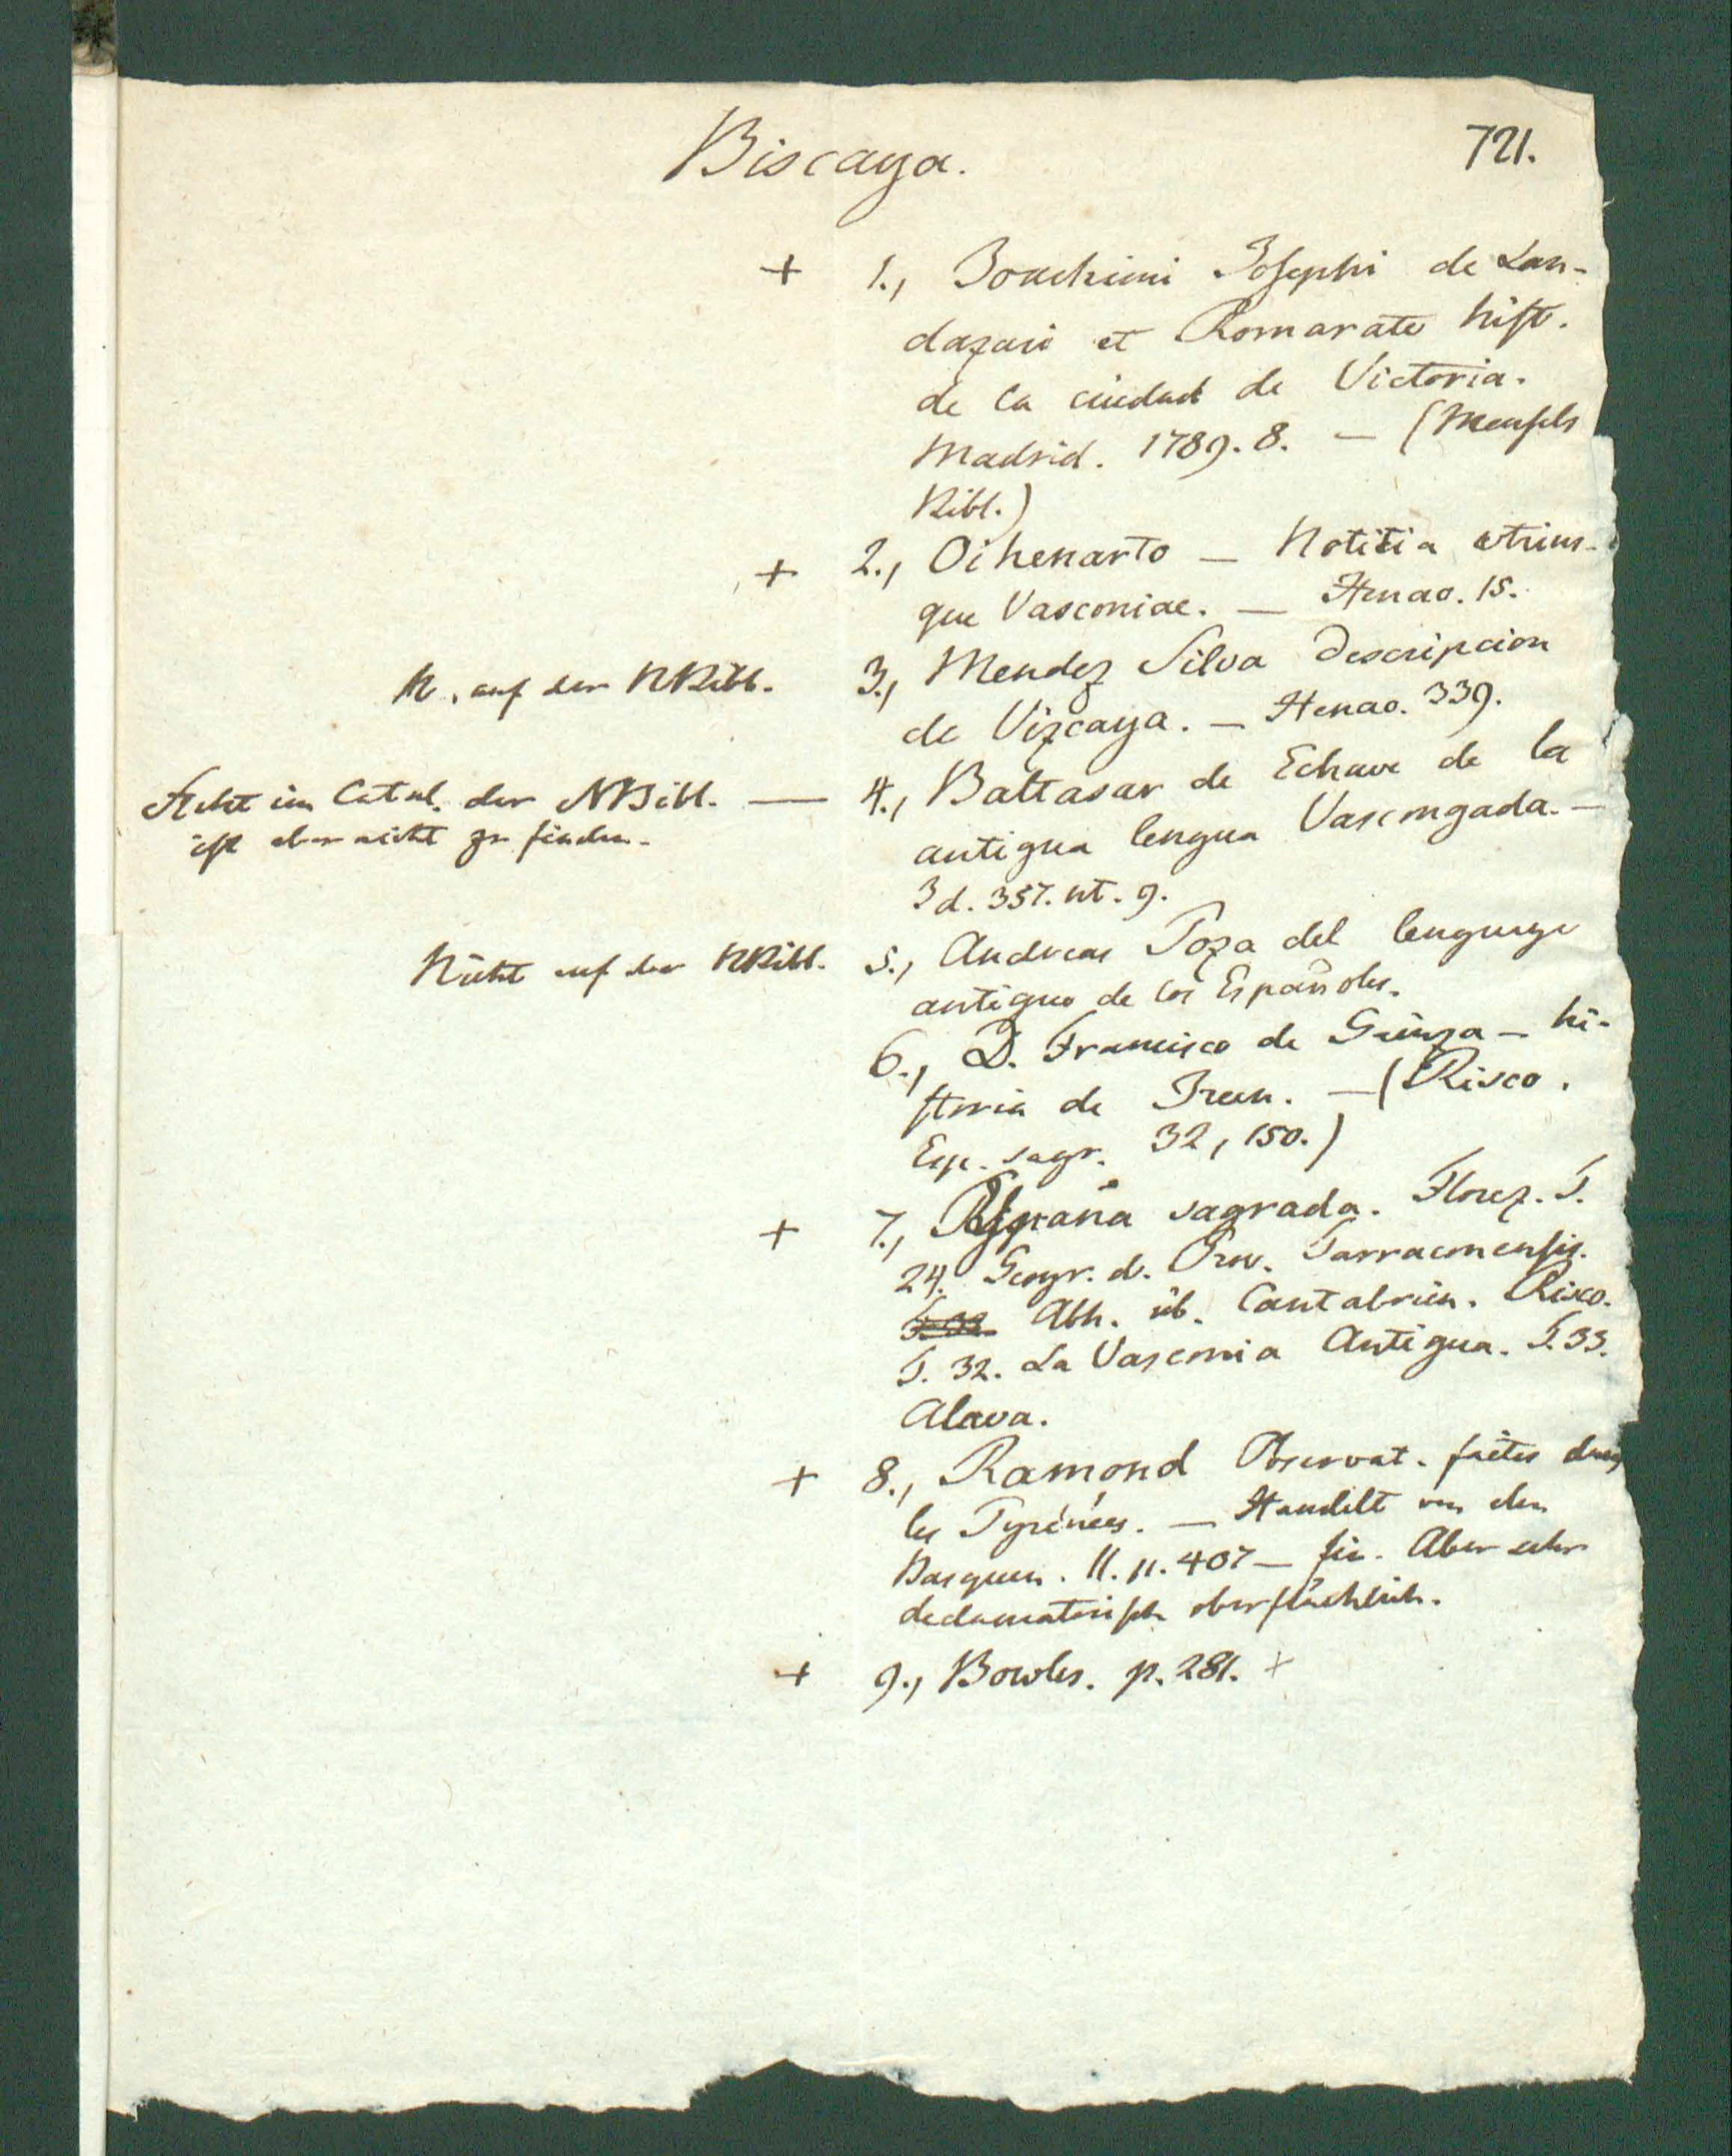 Biscaya.
721.
+ 1., Joachimi Josephi de Lan-
dazuri et Romarate hist.
de la ciudad de Victoria.
Madrid. 1789. 8. — (Meusels
Bibl.)
+ 2., Oihenarto — Notitia utrius-
que Vasconiae. — Henao. 15.
N. auf der NBibl. 3., Mendez Silva Descripcion
de Vizcaya. — Henao. 339.
Steht im Catal. der NBibl. — 4., Baltasar de Echave de la
ist aber nicht zu finden.
antigua lengua Vascongada. —
Id. 357. nt. 9.
Nicht auf der NBibl. 5., Andreas Poza del lenguage
antiguo de los Españoles.
6., D. Francisco de Gainza — hi-
storia de Irun. — (Risco.
Esp. sagr. 32, 150.)
+ 7., España sagrada. Florez. T.
24. Geogr. d. Prov. Tarraconensis.
Abh. üb. Cantabrien. Risco.
T. 32. La Vasconia Antigua. T. 33.
Alava.
+ 8., Ramond Observat. faites dans
les Pyrénées. — Handelt von den
Basquen. II. p. 407 — fin. Aber sehr
declamatorisch oberflächlich.
+ 9., Bowles. p. 281. +